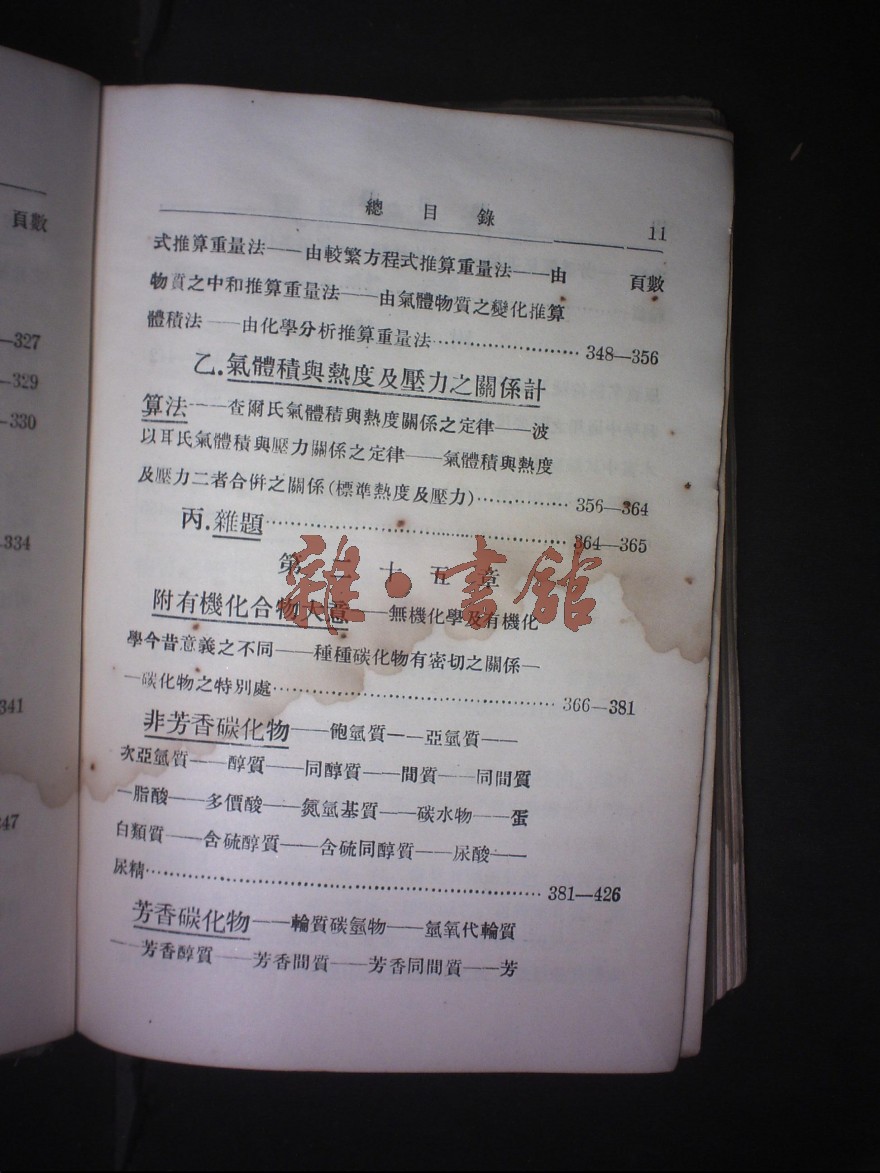 頁數
327
329
330
334
341
347
總目錄 11
頁數
式推算重量法——由較繁方程式推算重量法——由
物質之中和推算重量法——由氣體物質之變化推算
體積法——由化學分析推算重量法 348—356
乙.氣體積與熱度及壓力之關係計
算法——查爾氏氣體積與熱度關係之定律——波
以耳氏氣體積與壓力關係之定律——氣體積與熱度
及壓力二者合併之關係(標準熱度及壓力) 356—364
丙.雜題 364—365
第二十五章
附有機化合物大意——無機化學及有機化
學今昔意義之不同——種種碳化物有密切之關係—
—碳化物之特別處 366—381
非芳香碳化物——飽氫質——亞氫質——
次亞氫質——醇質——同醇質——間質——同間質
—脂酸——多價酸——氮氫基質——碳水物——蛋
白類質——含硫醇質——含硫同醇質——尿酸——
尿精 381—426
芳香碳化物——輪質碳氫物——氫氧代輪質
——芳香醇質——芳香間質——芳香同間質——芳
雜·書館